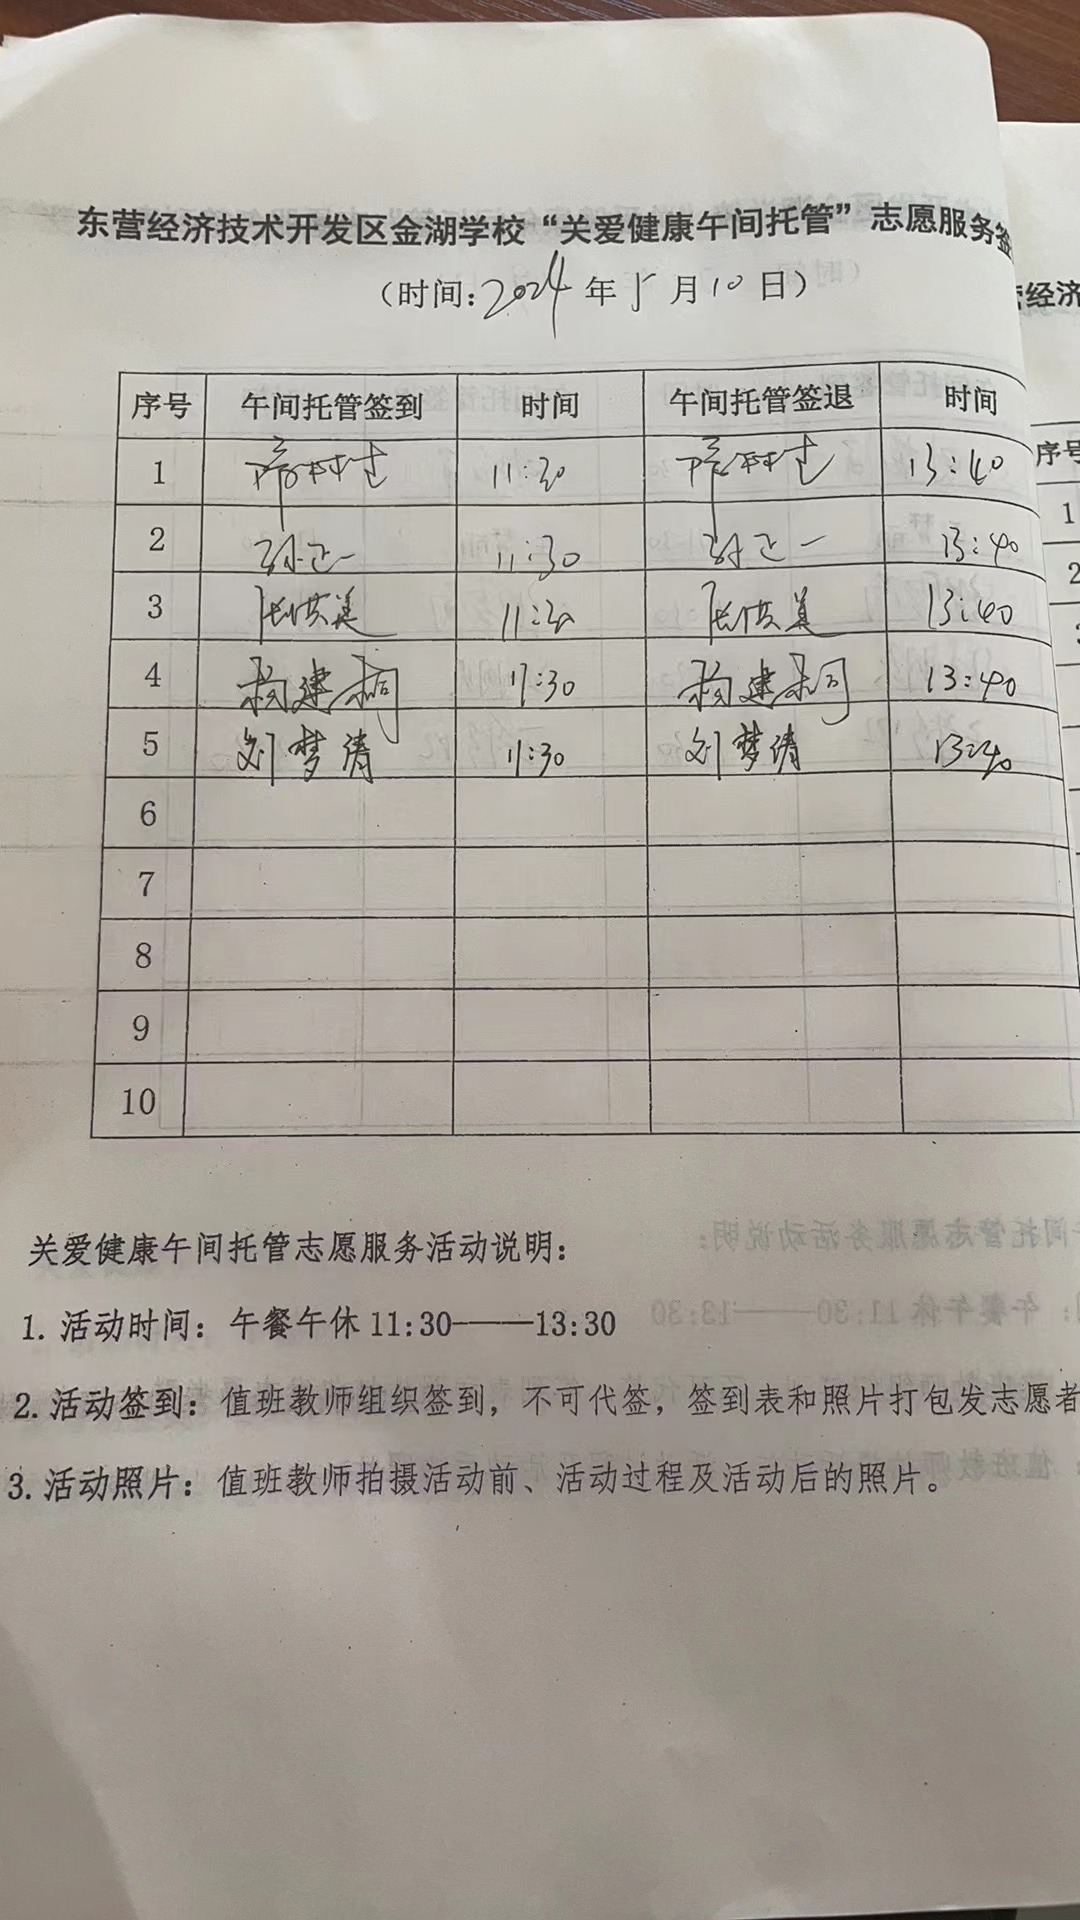 东营经济技术开发区金湖学校“关爱健康午间托管”志愿服务签
(时间:2024年5月10日)
序号 午间托管签到 时间 午间托管签退 时间
1 11:30 13:40
2 孙正一 11:30 孙正一 13:40
3 11:30 13:40
4 11:30 13:40
5 刘梦清 11:30 刘梦清 13:40
6
7
8
9
10
关爱健康午间托管志愿服务活动说明:
1. 活动时间: 午餐午休11:30——13:30
2. 活动签到: 值班教师组织签到, 不可代签, 签到表和照片打包发志愿者
3. 活动照片: 值班教师拍摄活动前、活动过程及活动后的照片。
营经济
序号
1
2